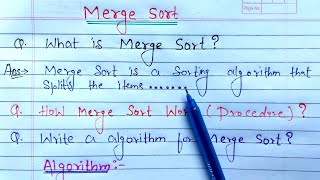 Merge Sort
Q. What is Merge Sort?
Ans:- Merge Sort is a Sorting algorithm that
Splits the items.......
Q. How Merge Sort Work (Procedure)?
Q. Write a algorithm for Merge Sort?
Algorithm:-